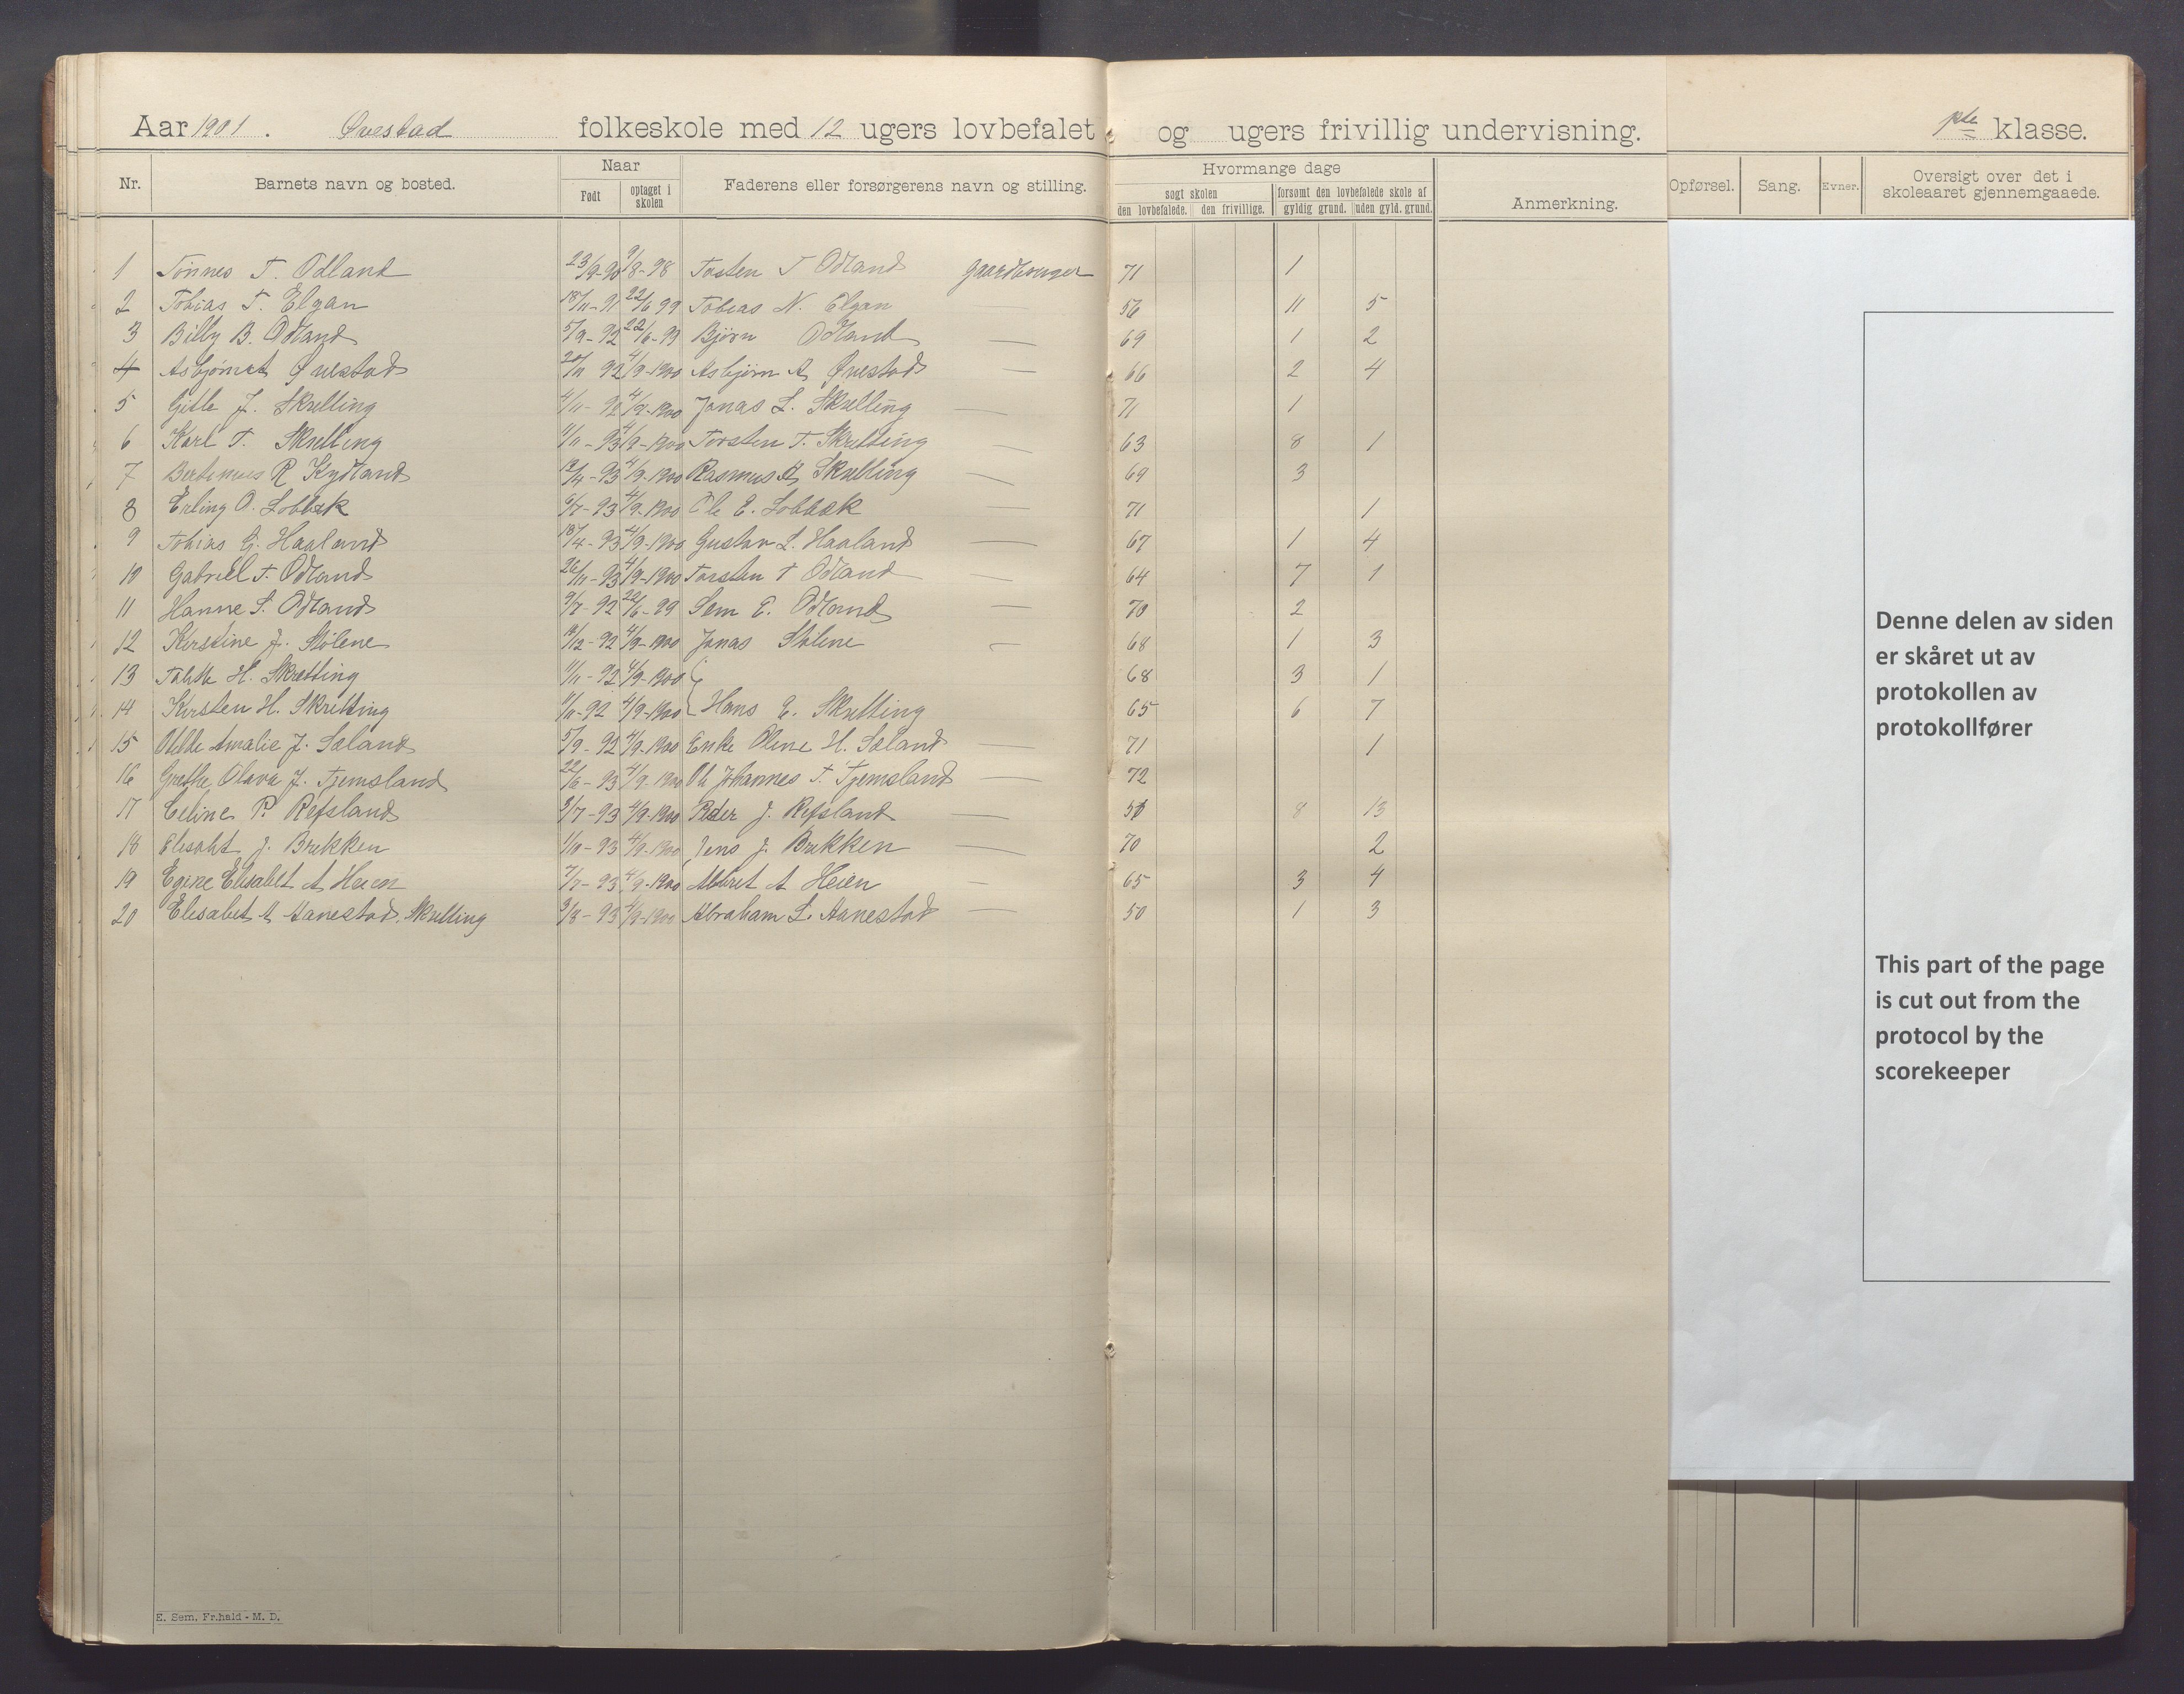 Aar 1901. Øvestad folkeskole med 12 ugers lovbefalet og ugers frivillig undervisning. klasse.
Nr. Barnets navn og bosted. Naar Født optaget i skolen Faderens eller forsørgerens navn og stilling. Hvormange dage søgt skolen den lovbefalede. den frivillige. forsømt den lovbefalede skole af gyldig grund. uden gyld. grund. Anmerkning. Opførsel. Sang. Evner. Oversigt over det i skoleaaret gjennemgaaede.
1 Tønnes T. Ødland 23/9-90 9/8-98 Tosten T Ødland Gaardbruger 71 1
2 Tobias T. Elgan 18/11-91 22/6 99 Tobias N. Elgan 56 11 5
3 Billy B. Ødland 5/9-92 22/6-99 Bjørn Ødland — 69 1 2
4 Øvestad 92 4/9-1900 Asbjørn A. Øvestad — 66 2 4
5 Gitle J. Skretting 4/11-92 4/9-1900 Jonas L. Skretting — 71 1
6 Karl T. Skretting 4/9-1900 Torsten T. Skretting — 63 8 1
7 R Kydland 4/9-1900 Rasmus Skretting — 69 3
8 Erling O. Lobbæk 6/7-93 4/9-1900 Ole E. Lobbæk — 71 1
9 Tobias G. Haaland 18/4-93 4/9-1900 Gustav L. Haaland — 67 1 4
10 Gabriel T. Ødland 26/11-93 4/9-1900 Torsten T Ødland — 64 7 1
11 Hanne S. Ødland 9/7-92 22/6-99 Sem E. Ødland — 70 2
12 Kirstine J. Stølene 4/9-1900 Jonas Stølene — 68 1 3
13 H. Skretting 1/11-92 4/9-1900 68 3 1
14 Kirsten H. Skretting 4/9-1900 Hans E. Skretting 65 6 7
15 Amalie J. Sæland 5/9-92 4/9-1900 Enke Oline H. Sæland — 71 1
16 Grethe Olava J. Tjemsland 22/6-93 4/9-1900 Johannes T. Tjemsland — 72
17 Celine P. Refsland 3/7-93 4/9-1900 Peder J. Refsland — 8 13
18 J. Brekken 1/10-93 4/9-1900 Jens J. Brekken — 70 2
19 Egine Elisabet A Heien 7/7-93 4/9-1900 A Heien — 65 3 4
20 Elisabet A Aanestad, Skretting 3/8-93 4/9-1900 Abraham L. Aanestad — 50 1 3
Denne delen av siden
er skåret ut av
protokollen av
protokollfører
This part of the page
is cut out from the
protocol by the
scorekeeper
E. Sem, Fr.hald - M. D.